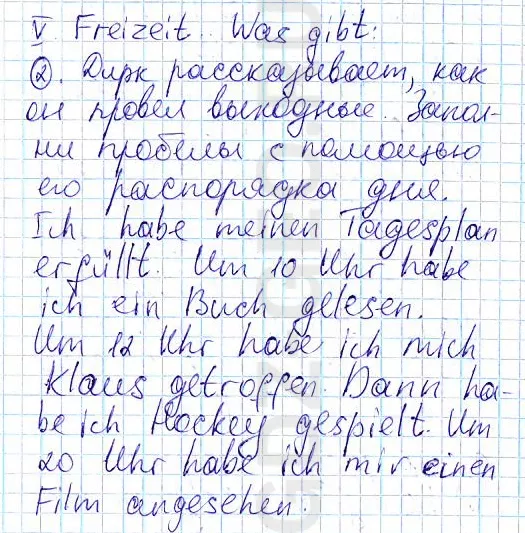 V Freizeit. Was gibt:
②. Дирк рассказывает, как
он провел выходные. Запол-
ни пробелы с помощью
его распорядка дня.
Ich habe meinen Tagesplan
erfüllt. Um 10 Uhr habe
ich ein Buch gelesen.
Um 12 Uhr habe ich mich
Klaus getroffen. Dann ha-
be ich Hockey gespielt. Um
20 Uhr habe ich mir einen
Film angesehen.